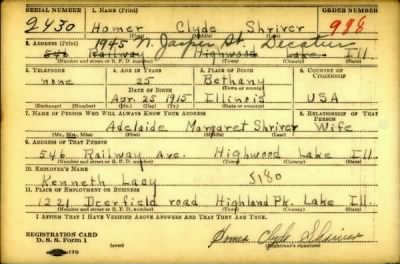 SERIAL NUMBER 1. NAME (Print) ORDER NUMBER
2430 Homer Clyde Shriver 988
(First) (Middle) (Last)
1945 N. Jasper St. Decatur
2. ADDRESS (Print)
546 Railway Highwood Lake Ill.
(Number and street or R. F. D. number) (Town) (County) (State)
3. TELEPHONE 4. AGE IN YEARS 5. PLACE OF BIRTH 6. COUNTRY OF CITIZENSHIP
none 25 Bethany
DATE OF BIRTH (Town or county)
Apr. 25 1915 Illinois USA
(Exchange) (Number) (Mo.) (Day) (Yr.) (State or country)
7. NAME OF PERSON WHO WILL ALWAYS KNOW YOUR ADDRESS 8. RELATIONSHIP OF THAT PERSON
Adelaide Margaret Shriver Wife
(Mr., Mrs., Miss) (First) (Middle) (Last)
9. ADDRESS OF THAT PERSON
546 Railway Ave. Highwood Lake Ill.
(Number and street or R. F. D. number) (Town) (County) (State)
10. EMPLOYER'S NAME
Kenneth Lacy 5180
11. PLACE OF EMPLOYMENT OR BUSINESS
1221 Deerfield road Highland Pk. Lake Ill.
(Number and street or R. F. D. number) (Town) (County) (State)
I AFFIRM THAT I HAVE VERIFIED ABOVE ANSWERS AND THAT THEY ARE TRUE.
REGISTRATION CARD
D. S. S. Form 1 Homer Clyde Shriver